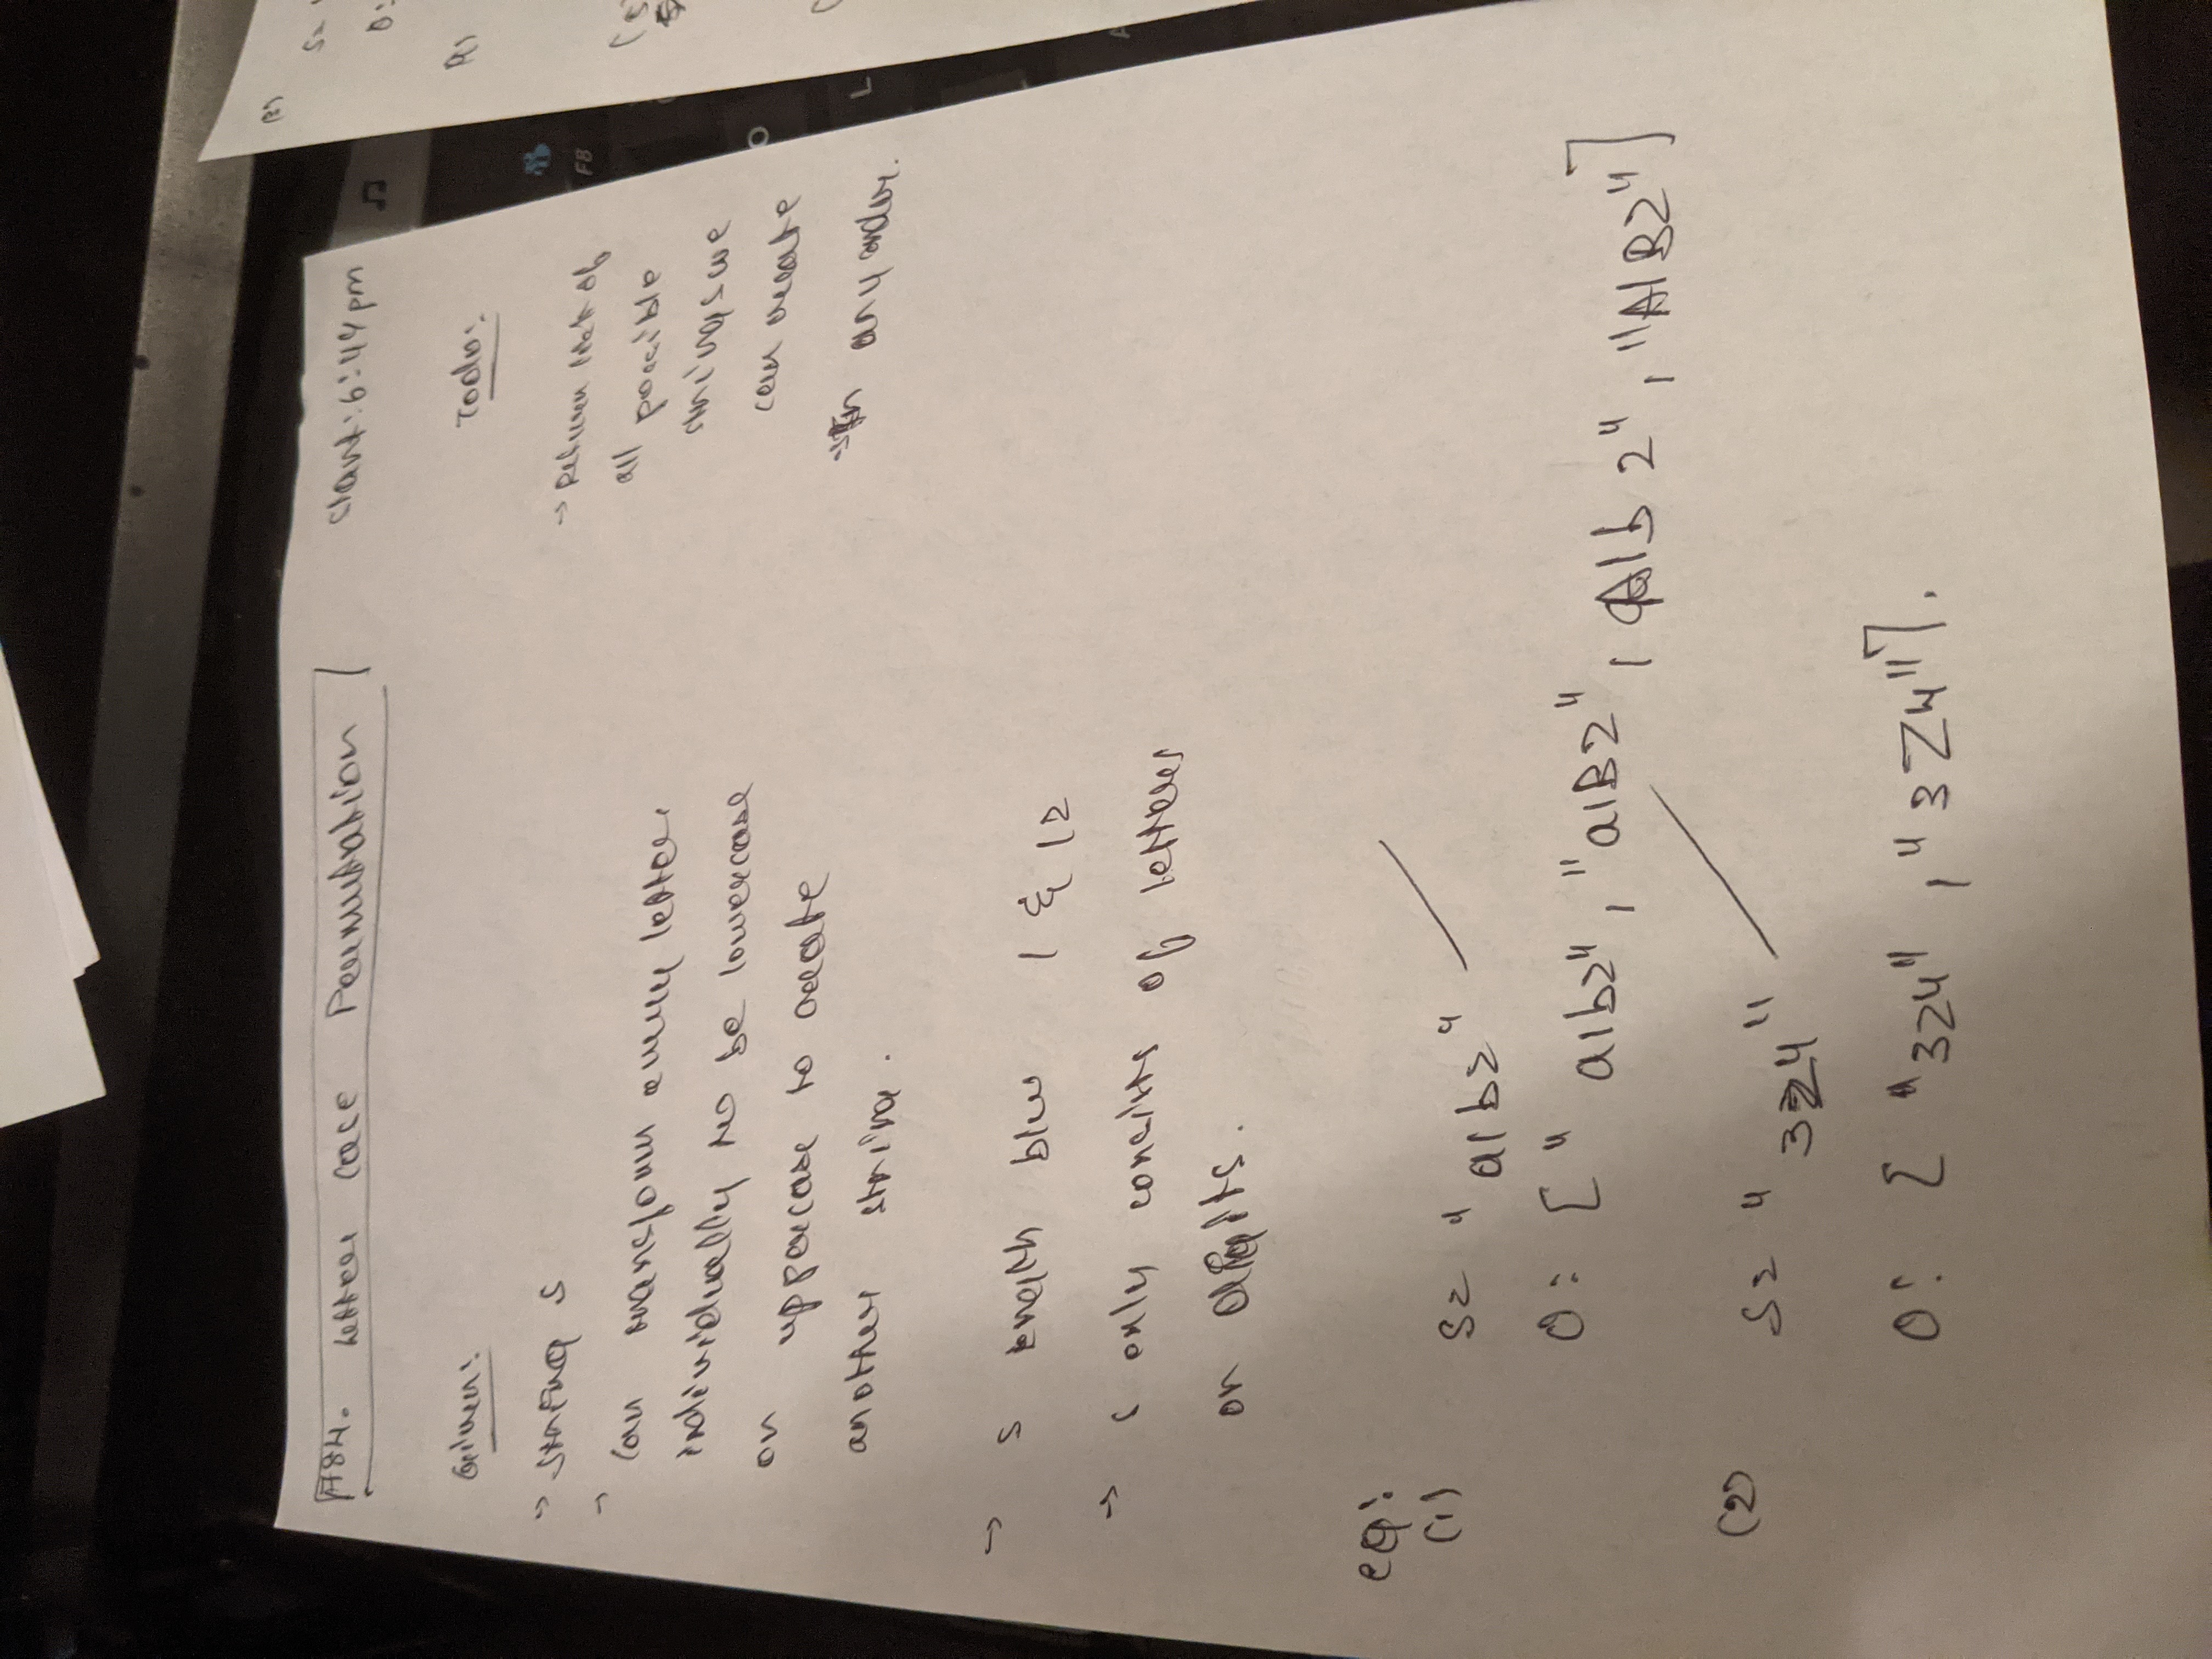 784. Letter Case Permutation
Start: 6:44 pm
Given:
→ string s
→ can transform every letter
individually to be lowercase
or uppercase to create
another string.
→ s length b/w 1 & 12
→ s only consists of letters
or digits.
Todo:
→ Return list of
all possible
strings we
can create
→ In any order.
eg:
(1) s = "a1b2"
O: ["a1b2", "a1B2", A1b2", "A1B2"]
(2) s = "3z4"
O: ["3z4", "3Z4"].
F8
L
(3)
s=
O: